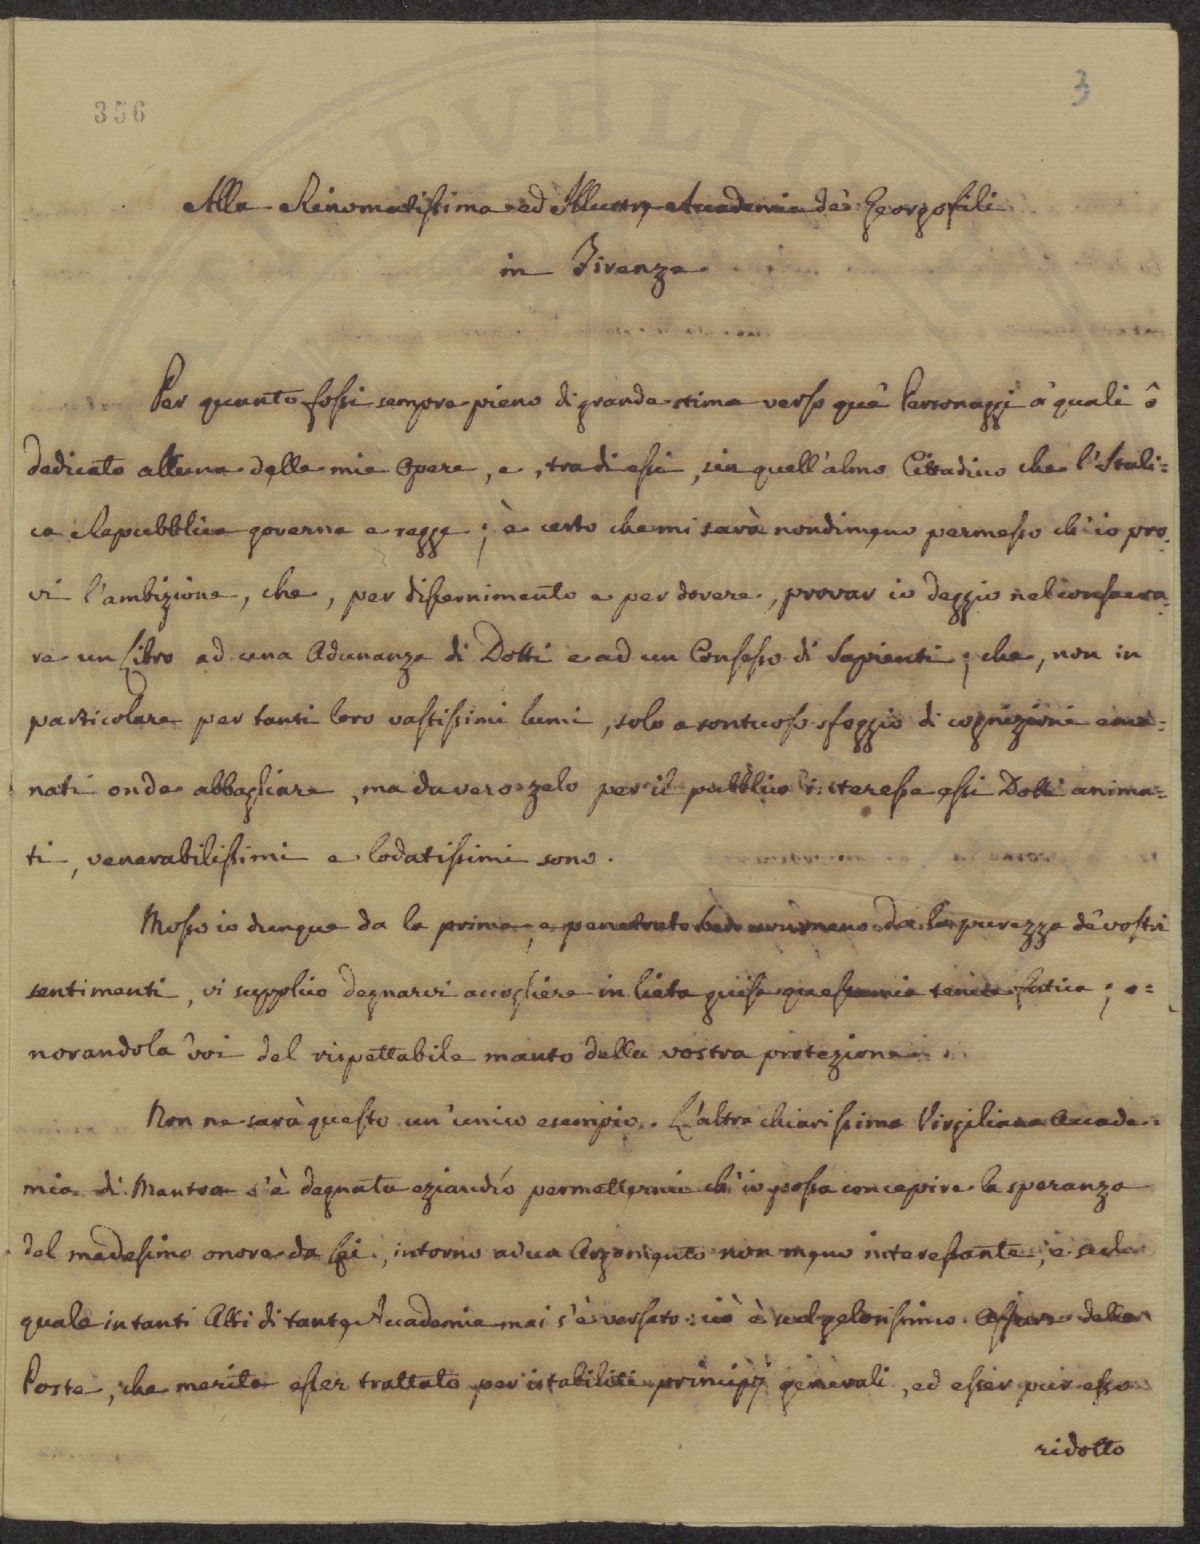 356
3
Alla Rinomatissima ed Illustre Accademia de' Georgofili
in Firenze.
Per quanto fossi sempre pieno di grande stima verso que' Personaggi a' quali ò
dedicato alcuna delle mie Opere, e, tra di essi, sin quell'almo Cittadino che l'Itali=
ca Repubblica governa e regge; è certo che mi sarà nondimeno permesso ch'io pro=
vi l'ambizione, che, per discernimento e per dovere, provar io deggio nel consacra=
re un Libro ad una Adunanza di Dotti e ad un Consesso di Sapienti; che, non in
particolare per tanti loro vastissimi lumi, solo a sontuoso sfoggio di cognizioni ema=
nati onde abbagliare, ma da vero zelo per il pubblico interesse essi Dotti anima=
ti, venerabilissimi e lodatissimi sono.
Mosso io dunque da la prima, e penetrato da la purezza de' vostri
sentimenti, vi supplico degnarvi accogliere in lieta guisa questa mia tenue fatica; o=
norandola voi del rispettabile manto della vostra protezione.
Non ne sarà questo un'unico esempio. L'altra chiarissima Virgiliana Accade=
mia di Mantoa s'è degnata eziandío permettermi ch'io possa concepire la speranza
del medesimo onore da Lei, intorno ad un Argomento non meno interessante, e sul
quale in tanti Atti di tante Accademie mai s'è versato: ciò è sul gelosissimo Affare delle
Poste, che merita esser trattato per istabiliti principj generali, ed esser pur esso
ridotto